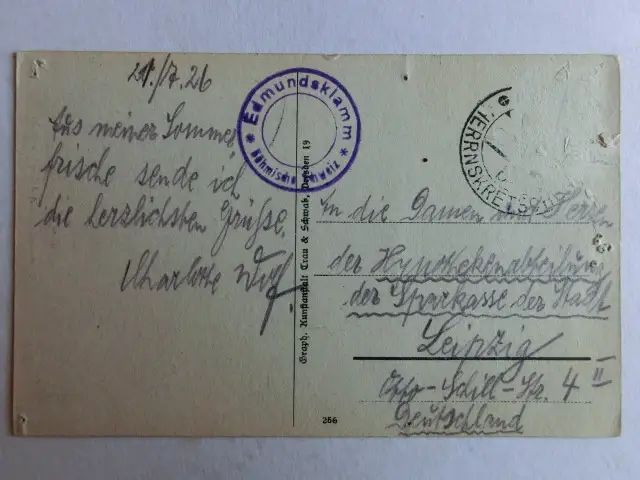 21./7.26
Aus meiner Sommer
frische sende ich
die herzlichsten Grüße.
Charlotte
Edmundsklamm
Böhmische Schweiz
Graph. Kunstanstalt Trau & Schwab, Dresden 19
HERRNSKRETSCHEN
An die Damen und Herren
der Hypothekenabteilung
der Sparkasse der Stadt
Leipzig
Otto-Schill-Str. 4 II
Deutschland
266